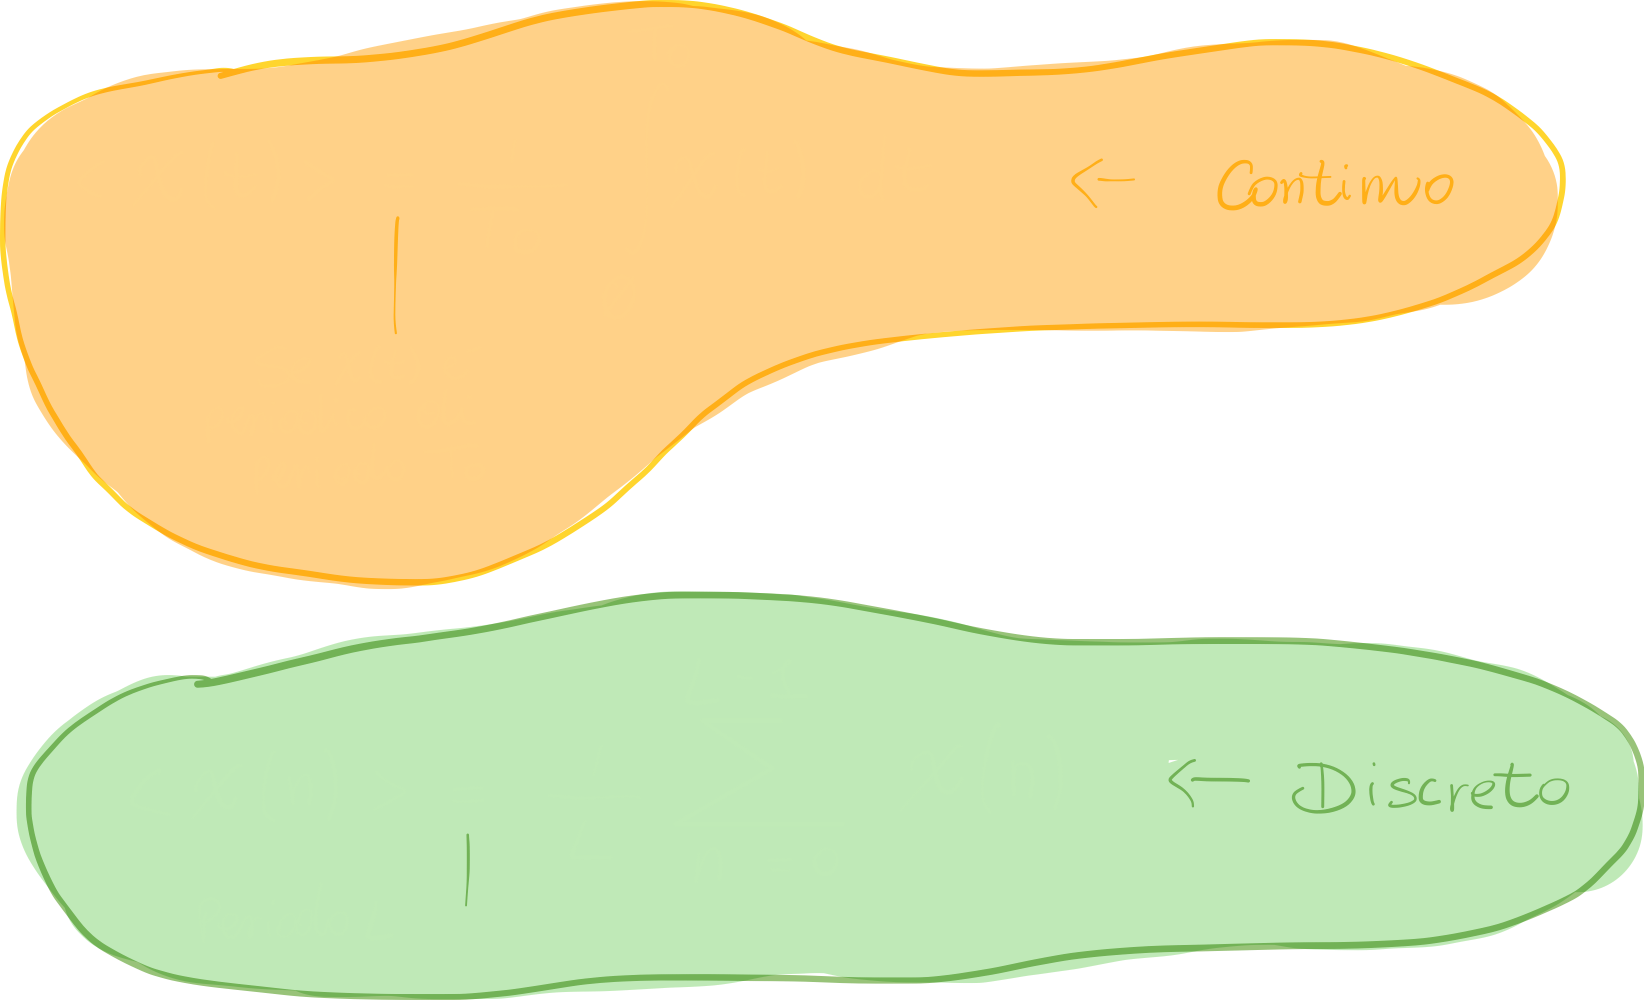 ← Continuo
← Discreto